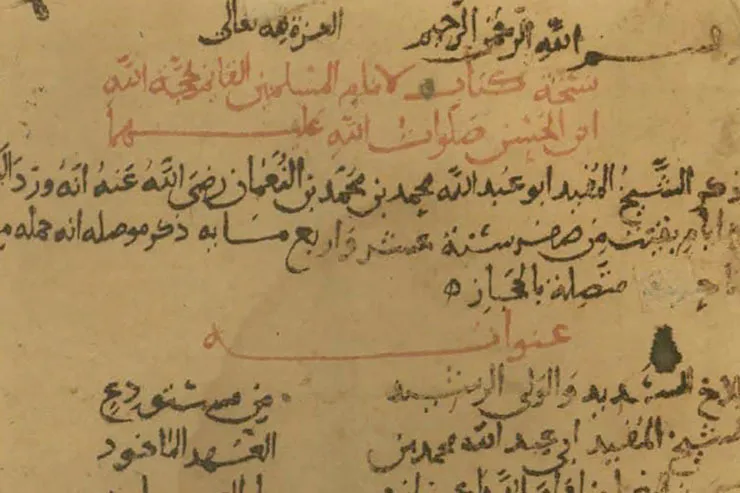 بسم الله الرحمن الرحيم العزة لله تعالى
نسخة كتاب لامام المسلمين القائم لحجة الله
ابن الحسن صلوات الله عليهما
ذكر الشيخ المفيد ابو عبد الله محمد بن محمد بن النعمان رضى الله عنه انه ورد
ايام بقيت من صفر سنة عشر واربع مايه ذكر موصله انه حمله
متصلة بالحجاز
عنوانه
الشديد والولى الرشيد من مستودع
الشيخ المفيد ابى عبد الله محمد بن العهد الماخوذ